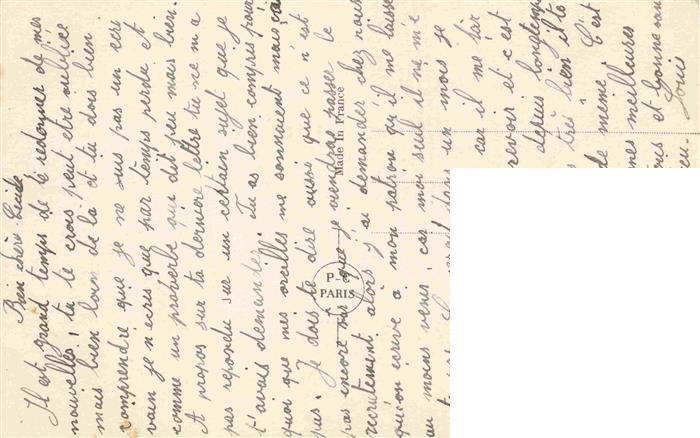 Bien chère Cécile
Il est grand temps de te redonner de mes
nouvelles, tu te crois peut être oubliée
mais bien loin de la et tu dois bien
comprendre que je ne suis pas un ecri
vain je n'ecris que par temps perdu et
comme un proverbe qui dit peu mais bien.
A propos sur ta derniere lettre tu ne m'a
pas repondu sur un certain sujet que je
t'avais demander. Tu as bien compris pour
quoi que mes oreilles me sonnuient mais
pas. Je dois te dire aussi que ce n'est
pas encore sûr que je viendrai passer le
recrutement alors j'ai demander chez nous
qu'on ecrive a mon patron qu'il me laisse
au moins venir, car moi seul il ne me
un mois je
car il me tar
revoir et c'est
depuis longtemps
très bien il te
de même C'est
mes meilleures
et bonne
Louis
P-c
PARIS
Made In France